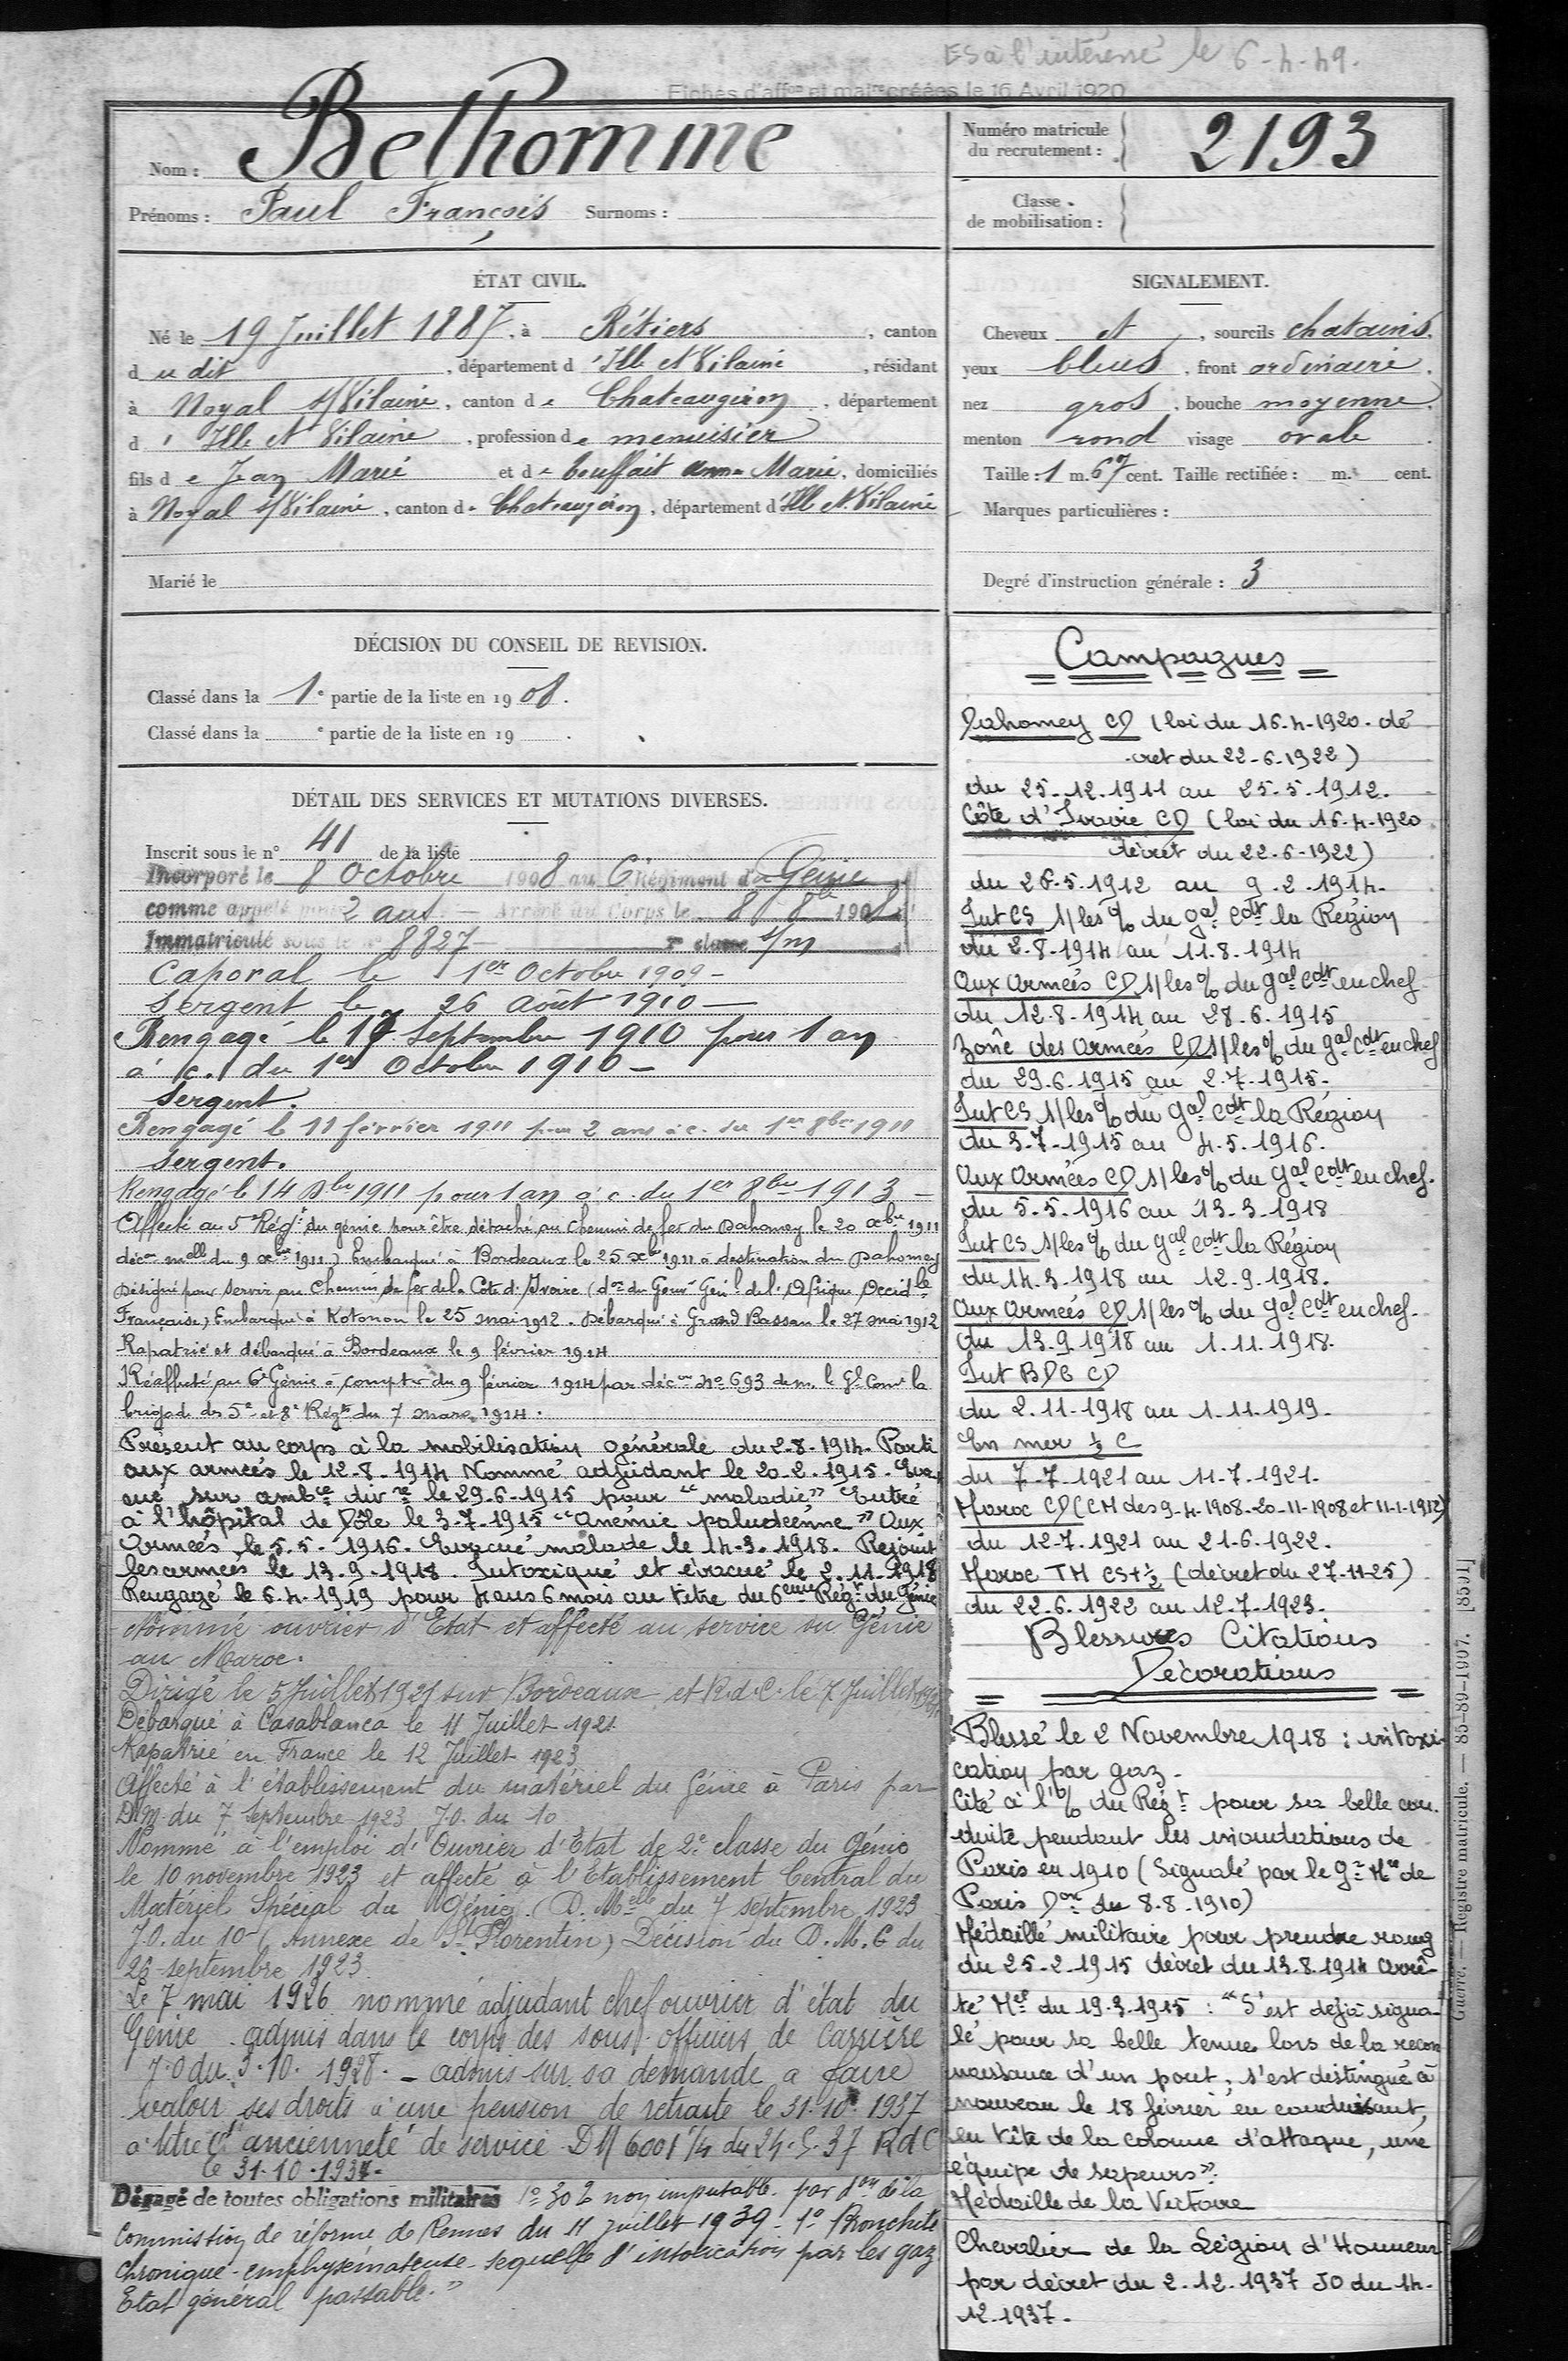 ES à l'intéressé le 6-4-49.
Fiches d'aff^on et mat^re créées le 16 Avril 1920
Nom : Belhomme
Prénoms : Paul François Surnoms :
Numéro matricule
du recrutement : 2193
Classe
de mobilisation :
ÉTAT CIVIL.
Né le 19 Juillet 1887, à Rétiers, canton
d u dit, département d 'Ille et Vilaine, résidant
à Noyal s/Vilaine, canton d e Chateaugiron, département
d ' Ille et Vilaine, profession d e menuisier
fils d e Jean Marie et d e Anne Marie, domiciliés
à Noyal s/Vilaine, canton d e Chateaugiron, département d'Ille et Vilaine
Marié le
SIGNALEMENT.
Cheveux et, sourcils chatains,
yeux bleus, front ordinaire,
nez gros, bouche moyenne,
menton rond visage ovale.
Taille : 1 m. 67 cent. Taille rectifiée : m. cent.
Marques particulières :
Degré d'instruction générale : 3
DÉCISION DU CONSEIL DE REVISION.
Classé dans la 1e partie de la liste en 1908.
Classé dans la e partie de la liste en 19 .
DÉTAIL DES SERVICES ET MUTATIONS DIVERSES.
Inscrit sous le n° 41 de la liste
Incorporé le 8 Octobre 1908 au 6e Régiment du Génie
comme appelé pour 2 ans – Arrivé au Corps le 8 8bre 1908
Immatriculé sous le n° 8827 – 2e classe s/m
Caporal le 1er Octobre 1909 –
Sergent le 26 Août 1910 –
Rengagé le 17 Septembre 1910 pour 1 an
à c. du 1er Octobre 1910 –
Sergent.
Rengagé le 11 février 1911 pour 2 ans à c. du 1er 8bre 1911
Sergent.
Rengagé le 14 Xbre 1911 pour 1 an à c. du 1er 8bre 1913 –
Affecté au 5e Régt du génie pour être détaché au Chemin de fer du Dahomey le 20 Xbre 1911
décon melle du 9 Xbre 1911) Embarqué à Bordeaux le 25 Xbre 1911 à destination du Dahomey
Désigné pour servir au Chemin de fer de la Cote d'Ivoire (don du Gouvr Génl de l'Afrique Occidle
Française) Embarqué à Kotonou le 25 mai 1912. Débarqué à Grand Bassam le 27 mai 1912
Rapatrié et débarqué à Bordeaux le 9 février 1914
Réaffecté au 6e Génie à compter du 9 février 1914 par décon No 693 de m. le Gl Comt la
brigade des 5e et 8e Régts du 7 mars 1914.
Présent au corps à la mobilisation générale du 2-8-1914. Parti
aux armées le 12-8-1914 Nommé adjudant le 20-2-1915. Eva
cué sur ambce divre le 29-6-1915 pour "maladie" Entré
à l'hôpital de Dôle le 3-7-1915 "anémie paludéenne" Aux
Armées le 5.5.1916. Evacué malade le 14-3-1918. Rejoint
les armées le 13-9-1918. Intoxiqué et évacué le 2.11.1918
Rengagé le 6.4.1919 pour 4 ans 6 mois au titre du 6eme Régt du Génie
Nommé ouvrier d'Etat et affecté au service du Génie
au Maroc.
Dirigé le 5 Juillet 1921 sur Bordeaux et R.d.C. le 7 Juillet 1921
Débarqué à Casablanca le 11 Juillet 1921
Rapatrié en France le 12 Juillet 1923
Affecté à l'établissement du matériel du Génie à Paris par
D.M. du 7 septembre 1923 J.O. du 10
Nommé à l'emploi d'Ouvrier d'Etat de 2e classe du Génie
le 10 novembre 1923 et affecté à l'Etablissement Central du
Matériel Spécial du Génie. (D. Melle du 7 septembre 1923
J.O. du 10 (Annexe de St Florentin) Décision du D.M.G du
26 septembre 1923
Le 7 mai 1926 nommé adjudant chef ouvrier d'état du
Génie. admis dans le corps des sous-officiers de carrière
J.O du 3.10.1928. – admis sur sa demande a faire
valoir ses droits à une pension de retraite le 31-10-1937
à titre d'ancienneté de service DM 6001 1/4 du 24.5.37 RdC
le 31-10-1937.
Dégagé de toutes obligations militaires 1° 30 % non imputable par don de la
commission de réforme de Rennes du 11 juillet 1939 – 1° Bronchite
chronique – emphysémateuse – sequelle d'intoxication par les gaz
Etat général passable."
Campagnes
Dahomey CD (loi du 16-4-1920. dé
cret du 22-6-1922)
du 25.12.1911 au 25.5.1912.
Côte d'Ivoire CD (loi du 16-4-1920
décret du 22-6-1922)
du 26.5.1912 au 9.2.1914.
Int CS s/les % du gal Cdt la Région
du 2-8-1914 au 11.8.1914
Aux Armées CD s/les % du gal Cdt en chef
du 12-8-1914 au 28.6.1915
Zône des Armées CD s/les % du gal Cdt en chef
du 29.6.1915 au 2.7.1915.
Int CS s/les % du gal Cdt la Région
du 3.7.1915 au 4.5.1916.
Aux Armées CD s/les % du gal Cdt en chef.
du 5.5.1916 au 13.3.1918
Int CS s/les % du gal Cdt la Région
du 14.3.1918 au 12.9.1918.
Aux Armées CD s/les % du gal Cdt en chef.
du 13.9.1918 au 1.11.1918.
Int BDG CD
du 2.11.1918 au 1.11.1919.
En mer ½ C
du 7-7-1921 au 11-7-1921.
Maroc CD (CM des 9-4-1908-20-11-1908 et 11-1-1912)
du 12-7.1921 au 21-6.1922.
Maroc TM CS+½ (décret du 27-11-25)
du 22.6.1922 au 12.7-1923.
Blessures Citations
Décorations
Blessé le 2 Novembre 1918 : intoxi-
cation par gaz.
Cité à l'% du Régt pour sa belle con-
duite pendant les inondations de
Paris en 1910 (Signalé par le Gr Mre de
Paris Don du 8.8.1910)
Médaillé militaire pour prendre rang
du 25-2-1915 décret du 13.8.1914 Arrê-
té Mel du 19.3.1915 : "S'est déjà signa-
lé pour sa belle tenue lors de la recon
naissance d'un pont, s'est distingué à
nouveau le 18 février en conduisant,
en tête de la colonne d'attaque, une
équipe de sapeurs".
Médaille de la Victoire
Chevalier de la Légion d'Honneur
par décret du 2.12.1937 JO du 14.
12.1937.
Guerre. — Registre matricule. — 85-89-1907. [8591]